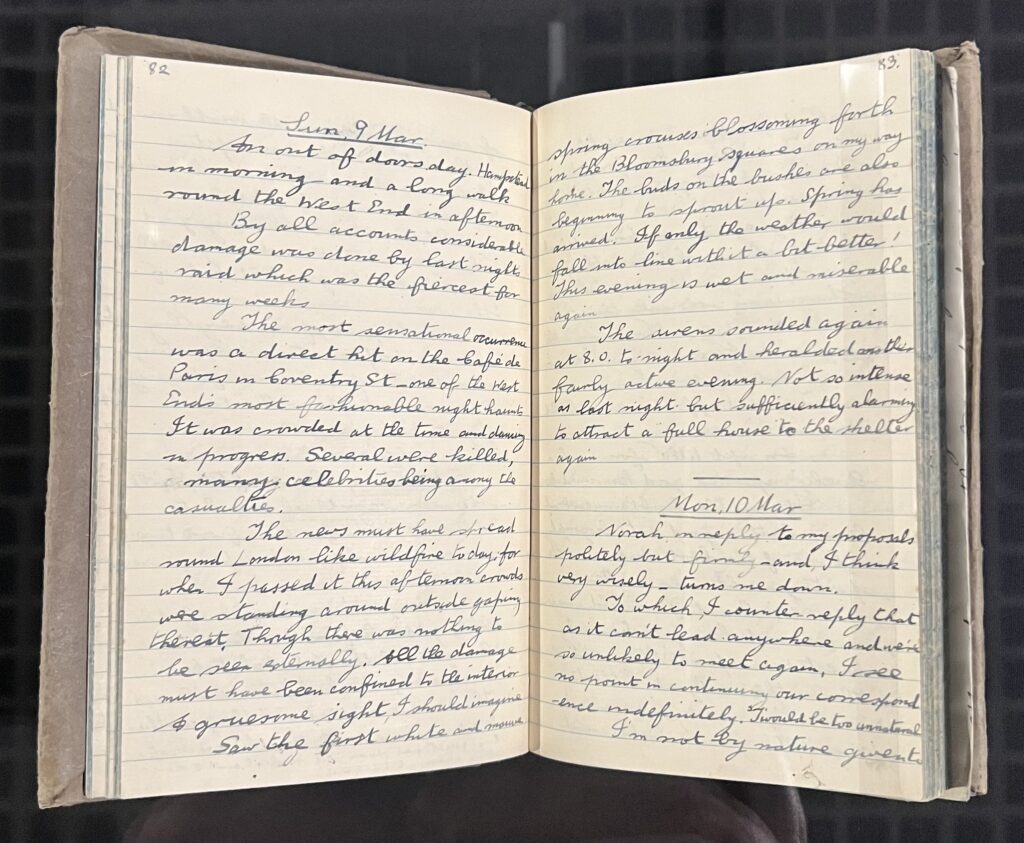 82
Sun, 9 Mar
An out of doors day. Hampstead
in morning and a long walk
round the West End in afternoon
By all accounts considerable
damage was done by last nights
raid which was the fiercest for
many weeks
The most sensational occurrence
was a direct hit on the Café de
Paris in Coventry St - one of the West
End's most fashionable night haunts
It was crowded at the time and dancing
in progress. Several were killed,
many celebrities being among the
casualties.
The news must have spread
round London like wildfire today, for
when I passed it this afternoon crowds
were standing around outside gaping
thereat, Though there was nothing to
be seen externally. All the damage
must have been confined to the interior
A gruesome sight, I should imagine
Saw the first white and mauve
83.
spring crocuses blossoming forth
in the Bloomsbury squares on my way
home. The buds on the bushes are also
beginning to sprout up. Spring has
arrived. If only the weather would
fall into line with it a bit better!
This evening is wet and miserable
again
The sirens sounded again
at 8.0. to-night and heralded another
fairly active evening. Not so intense
as last night but sufficiently alarming
to attract a full house to the shelter
again
Mon, 10 Mar
Norah in reply to my proposals
politely but firmly - and, I think
very wisely - turns me down.
To which I counter-reply that
as it can't lead anywhere and we're
so unlikely to meet again, I see
no point in continuing our correspond
-ence indefinitely. 'Twould be too unnatural
I'm not by nature given to